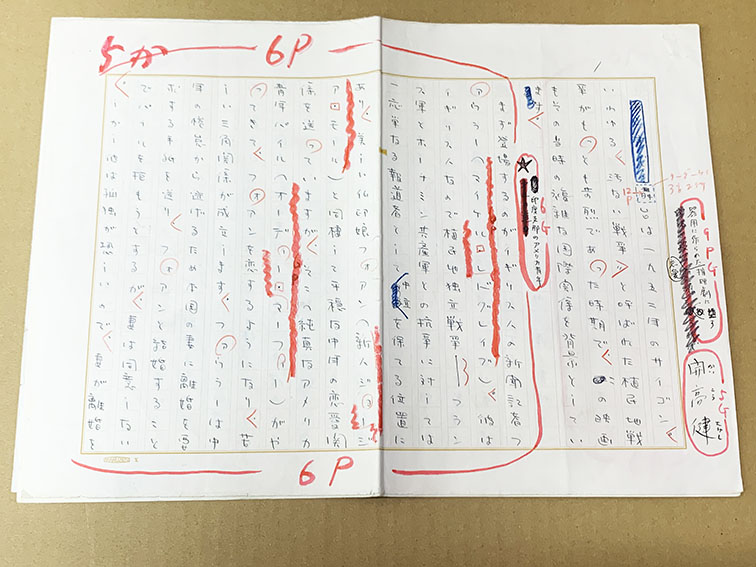 9PG
開高健
かいこうたけし
5G
は一九五二年のサイゴン。
いわゆる〈汚ない戦争〉と呼ばれた植民地戦
争がもっとも苛烈であった時期で、この映画
もその当時の複雑な国際関係を背景としてい
ます。
★印度支那のアメリカ青年
6G
まず登場するのがイギリス人の新聞記者フ
ァウラー(マイケル・レッドグレイブ)、彼は
イギリス人なので植民地独立戦争—フラン
ス軍とホーチミン共産軍との抗争に対しては
一応単なる報道者として中立を保てる位置に
あり、美しい仏印娘フォアン(新人
ア・モール)と同棲して平穏な中年の恋愛関
係を送っていますが、そこへ純真なアメリカ
青年パイル(オーディ・マーフィー)がや
ってきて、フォアンを恋するようになり、苦
しい三角関係が成立します。ファウラーは中
年の倦怠から逃げるため本国の妻に離婚を要
求する手紙を送り、フォアンと結婚すること
でパイルを拒もうとするが、妻は同意しない
。しかし彼は孤独が恐しいので、妻が離婚を
6P
6P